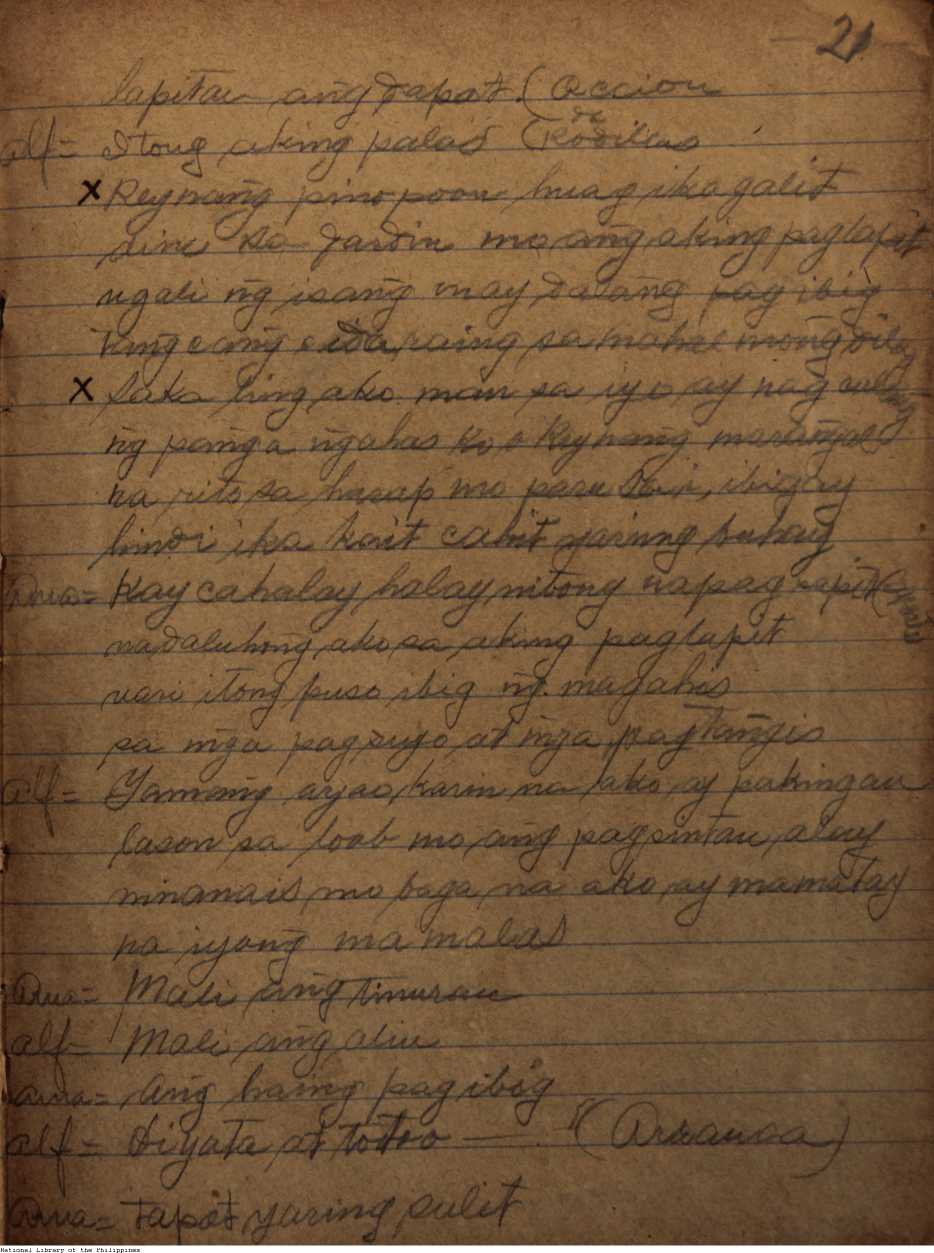 21
lapitan ang dapat. (Accion
de
alf = Itong aking palad (Rodillas
x Reynang pinopoon huag ika galit
dine sa jardin mo ang aking paglapit
ugali ng isang may dalang pag ibig
x Saka ling ako man sa iyo ay nag
ng panga ngahas ko o Reynang marangal
na rito sa harap mo ibigay
hindi ika kait cahit yaring buhay
Ana = Kay cahalay halay nitong napag sapit
nadaluhong ako sa aking paglapit
uari itong puso ibig ng magahis
sa mga pagsuyo at mga pagtangis
alf = Yamang ayao karin na ako ay pakingan
lason sa loob mo ang pagsintan alay
ninanais mo baga na ako ay mamatay
na iyong ma malas
Ana = Mali ang tinuran
alf = Mali ang alin
Ana = Ang haing pag ibig
alf = Diyata at totoo — (Arranca)
Ana = tapat yaring sulit
National Library of the Philippines